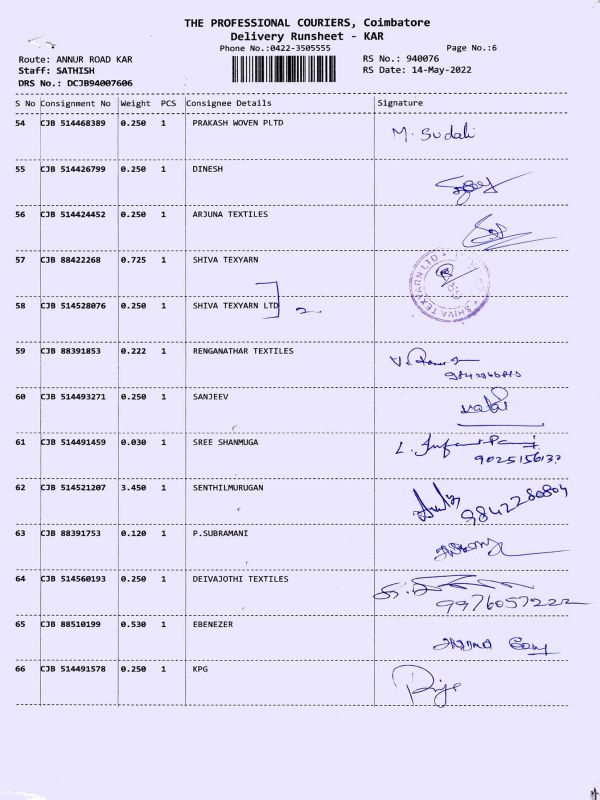 THE PROFESSIONAL COURIERS, Coimbatore
Delivery Runsheet - KAR
Phone No.:0422-3505555 Page No.:6
Route: ANNUR ROAD KAR RS No.: 940076
Staff: SATHISH RS Date: 14-May-2022
DRS No.: DCJB94007606
S No Consignment No Weight PCS Consignee Details Signature
54 CJB 514468389 0.250 1 PRAKASH WOVEN PLTD M. Sudali
55 CJB 514426799 0.250 1 DINESH
56 CJB 514424452 0.250 1 ARJUNA TEXTILES
57 CJB 88422268 0.725 1 SHIVA TEXYARN
SHIVA TEXYARN LTD
58 CJB 514528076 0.250 1 SHIVA TEXYARN LTD 2
59 CJB 88391853 0.222 1 RENGANATHAR TEXTILES
60 CJB 514493271 0.250 1 SANJEEV
61 CJB 514491459 0.030 1 SREE SHANMUGA
62 CJB 514521207 3.450 1 SENTHILMURUGAN
9842280804
63 CJB 88391753 0.120 1 P.SUBRAMANI
64 CJB 514560193 0.250 1 DEIVAJOTHI TEXTILES
9976057222
65 CJB 88510199 0.530 1 EBENEZER
66 CJB 514491578 0.250 1 KPG